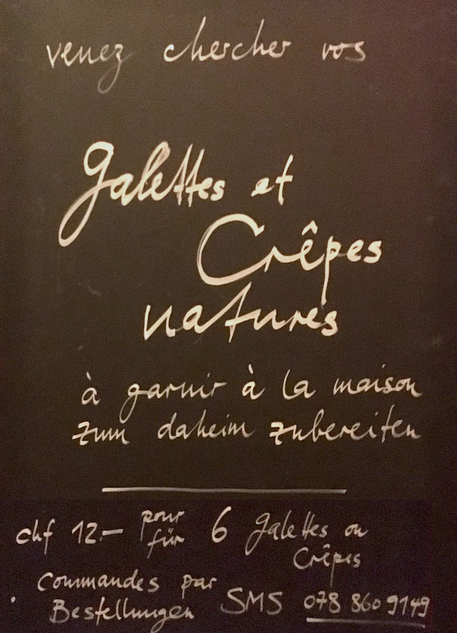 venez chercher vos
galettes et
Crêpes
natures
à garnir à la maison
zum daheim zubereiten
chf 12.– pour für 6 galettes ou
Crêpes
Commandes par
Bestellungen SMS 078 860 9149